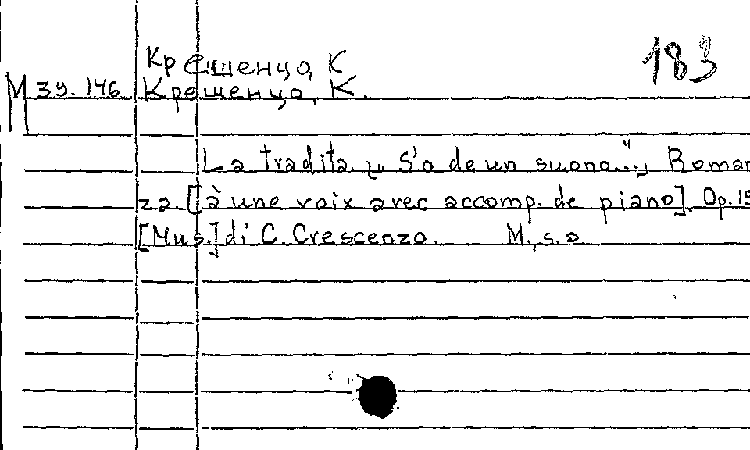 Крешенцо, К
183
М 39.146 Крешенцо, К.
La tradita „ S'o de un suono..." Roman
za. [à une voix avec accomp. de piano]. Op. 15
[Mus.] di C. Crescenzo. M., s.a.